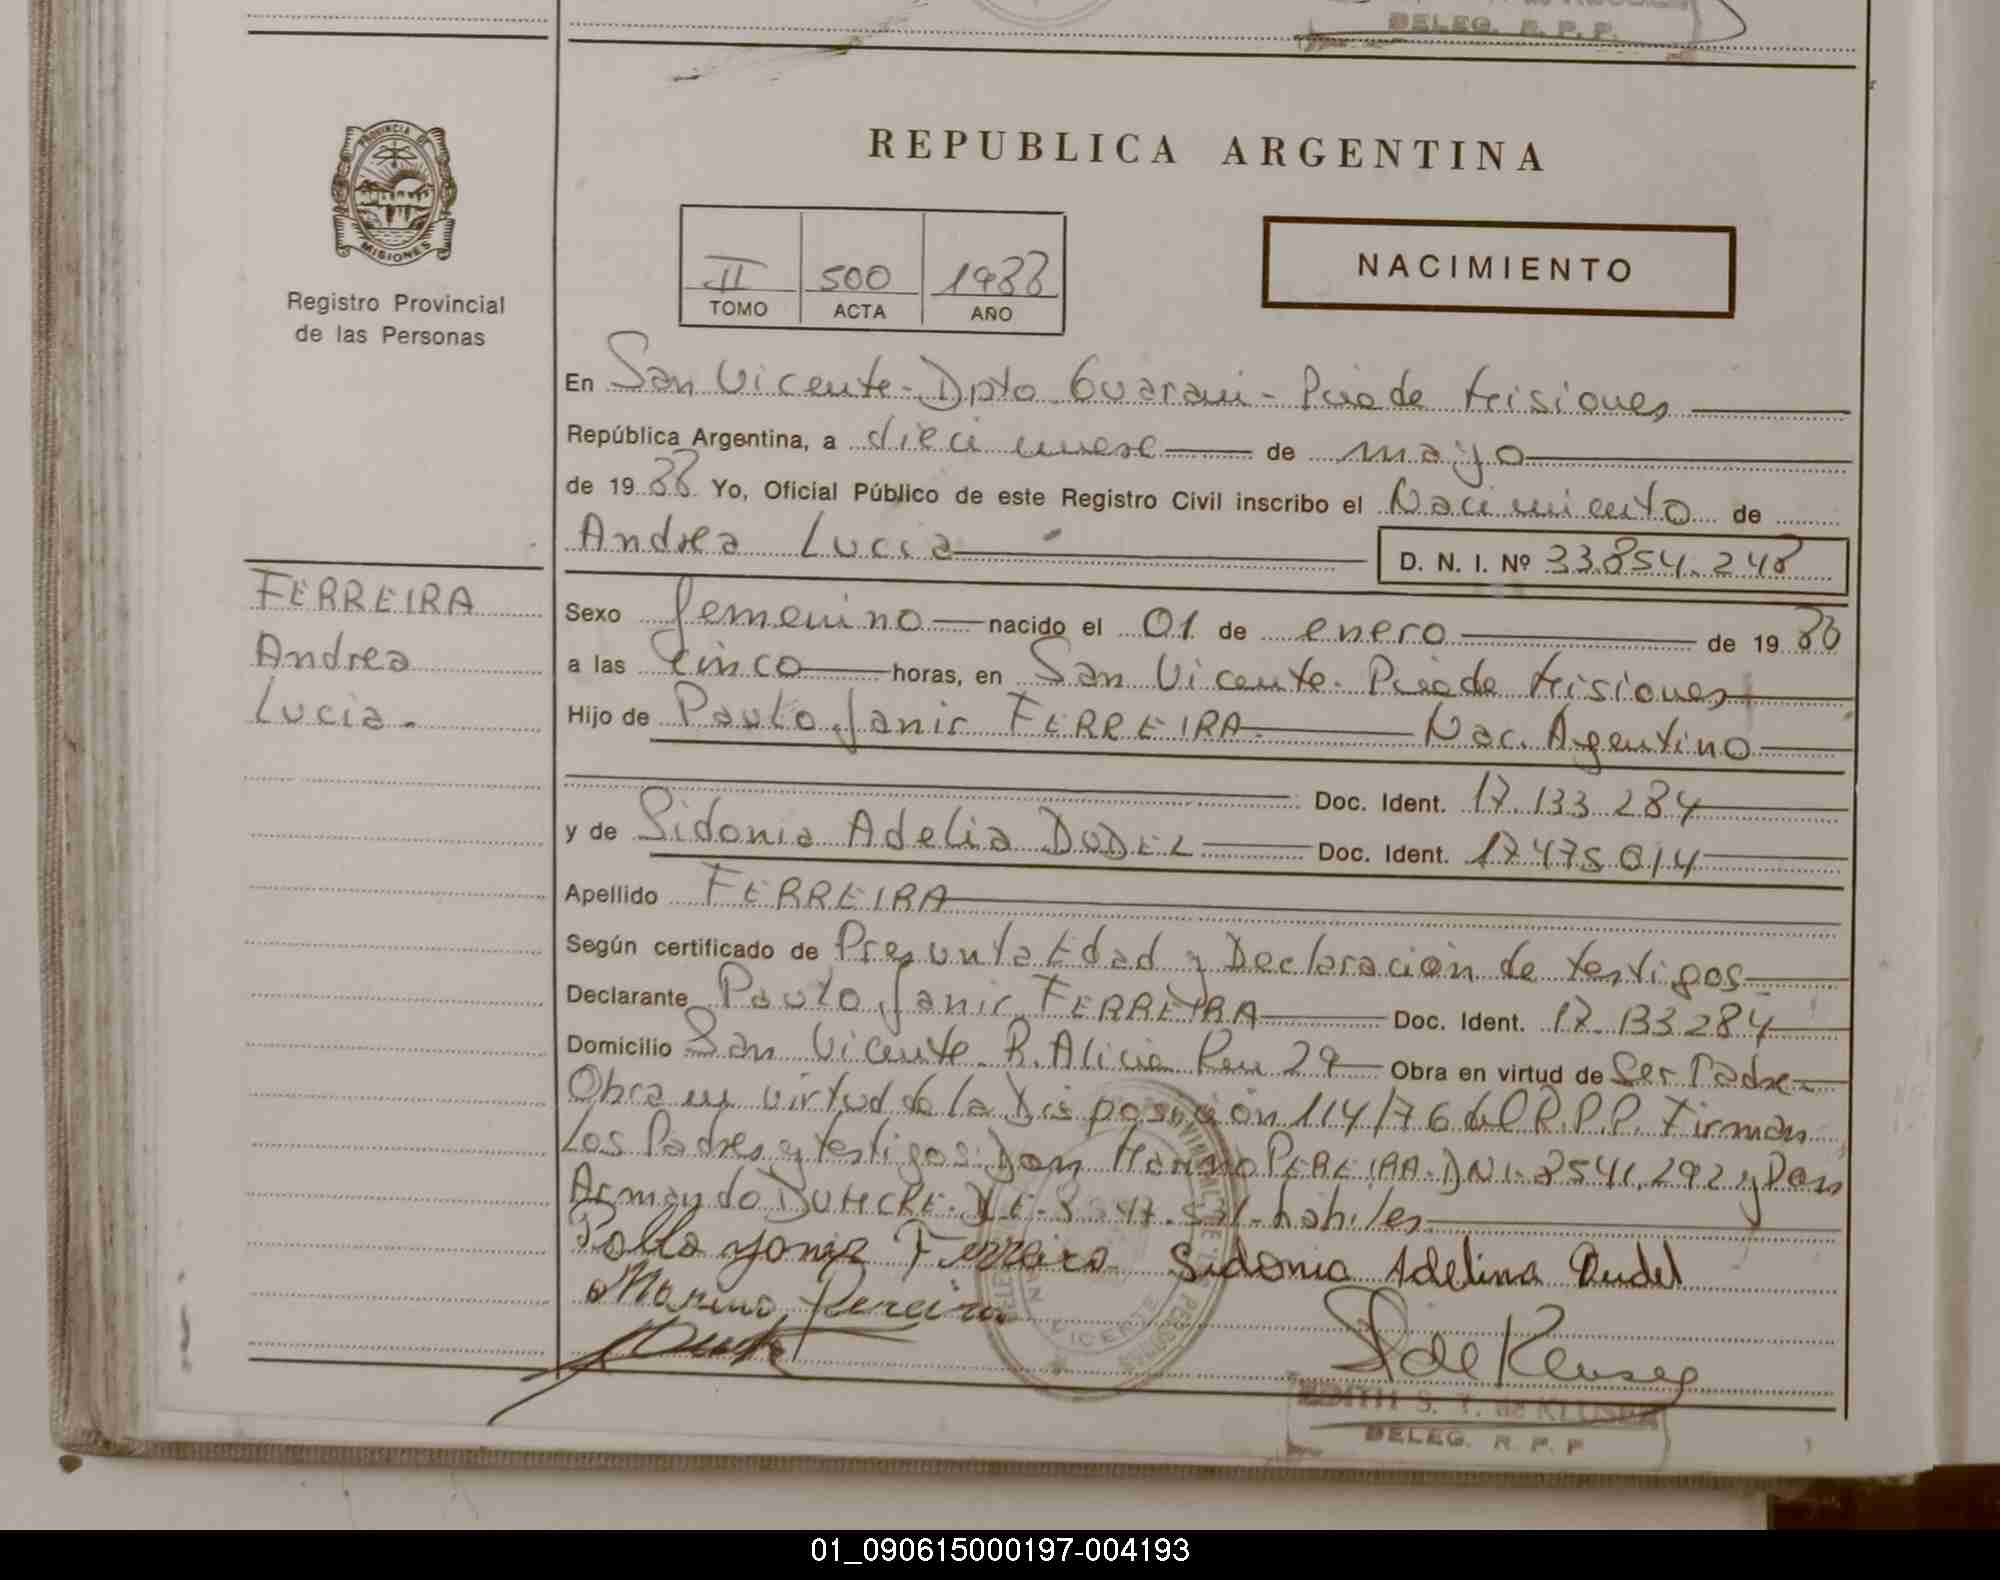 DELEG. R. P. P.
PROVINCIA DE
MISIONES
Registro Provincial
de las Personas
REPUBLICA ARGENTINA
II 500 1988
TOMO ACTA AÑO
NACIMIENTO
En San Vicente - Dpto Guarani - Pcia de Misiones
República Argentina, a diecinueve de mayo
de 1988 Yo, Oficial Público de este Registro Civil inscribo el Nacimiento de
Andrea Lucia D. N. I. Nº 33.854.248
FERREIRA
Andrea
Lucia.
Sexo femenino nacido el 01 de enero de 1988
a las cinco horas, en San Vicente. Pcia de Misiones
Hijo de Paulo Janir FERREIRA Nac. Argentino
Doc. Ident. 17.133.284
y de Sidonia Adelia DUDEL Doc. Ident. 17475014
Apellido FERREIRA
Según certificado de Presunta Edad y Declaración de testigos
Declarante Paulo Janir FERREIRA Doc. Ident. 17.133284
Domicilio San Vicente. R. Alicia Km 29 Obra en virtud de Ser Padre
Obra en virtud de la Disposición 114/76 del R.P.P. Firman
Los Padres y testigos: Don Marino PEREIRA. DNI- 8541.292 y Don
Armando - habiles
Ferreira Sidonia Adelina Dudel
Marino Pereira
VICENTE
EDITH S. T. de KLUSEN
DELEG. R. P. P
01_090615000197-004193